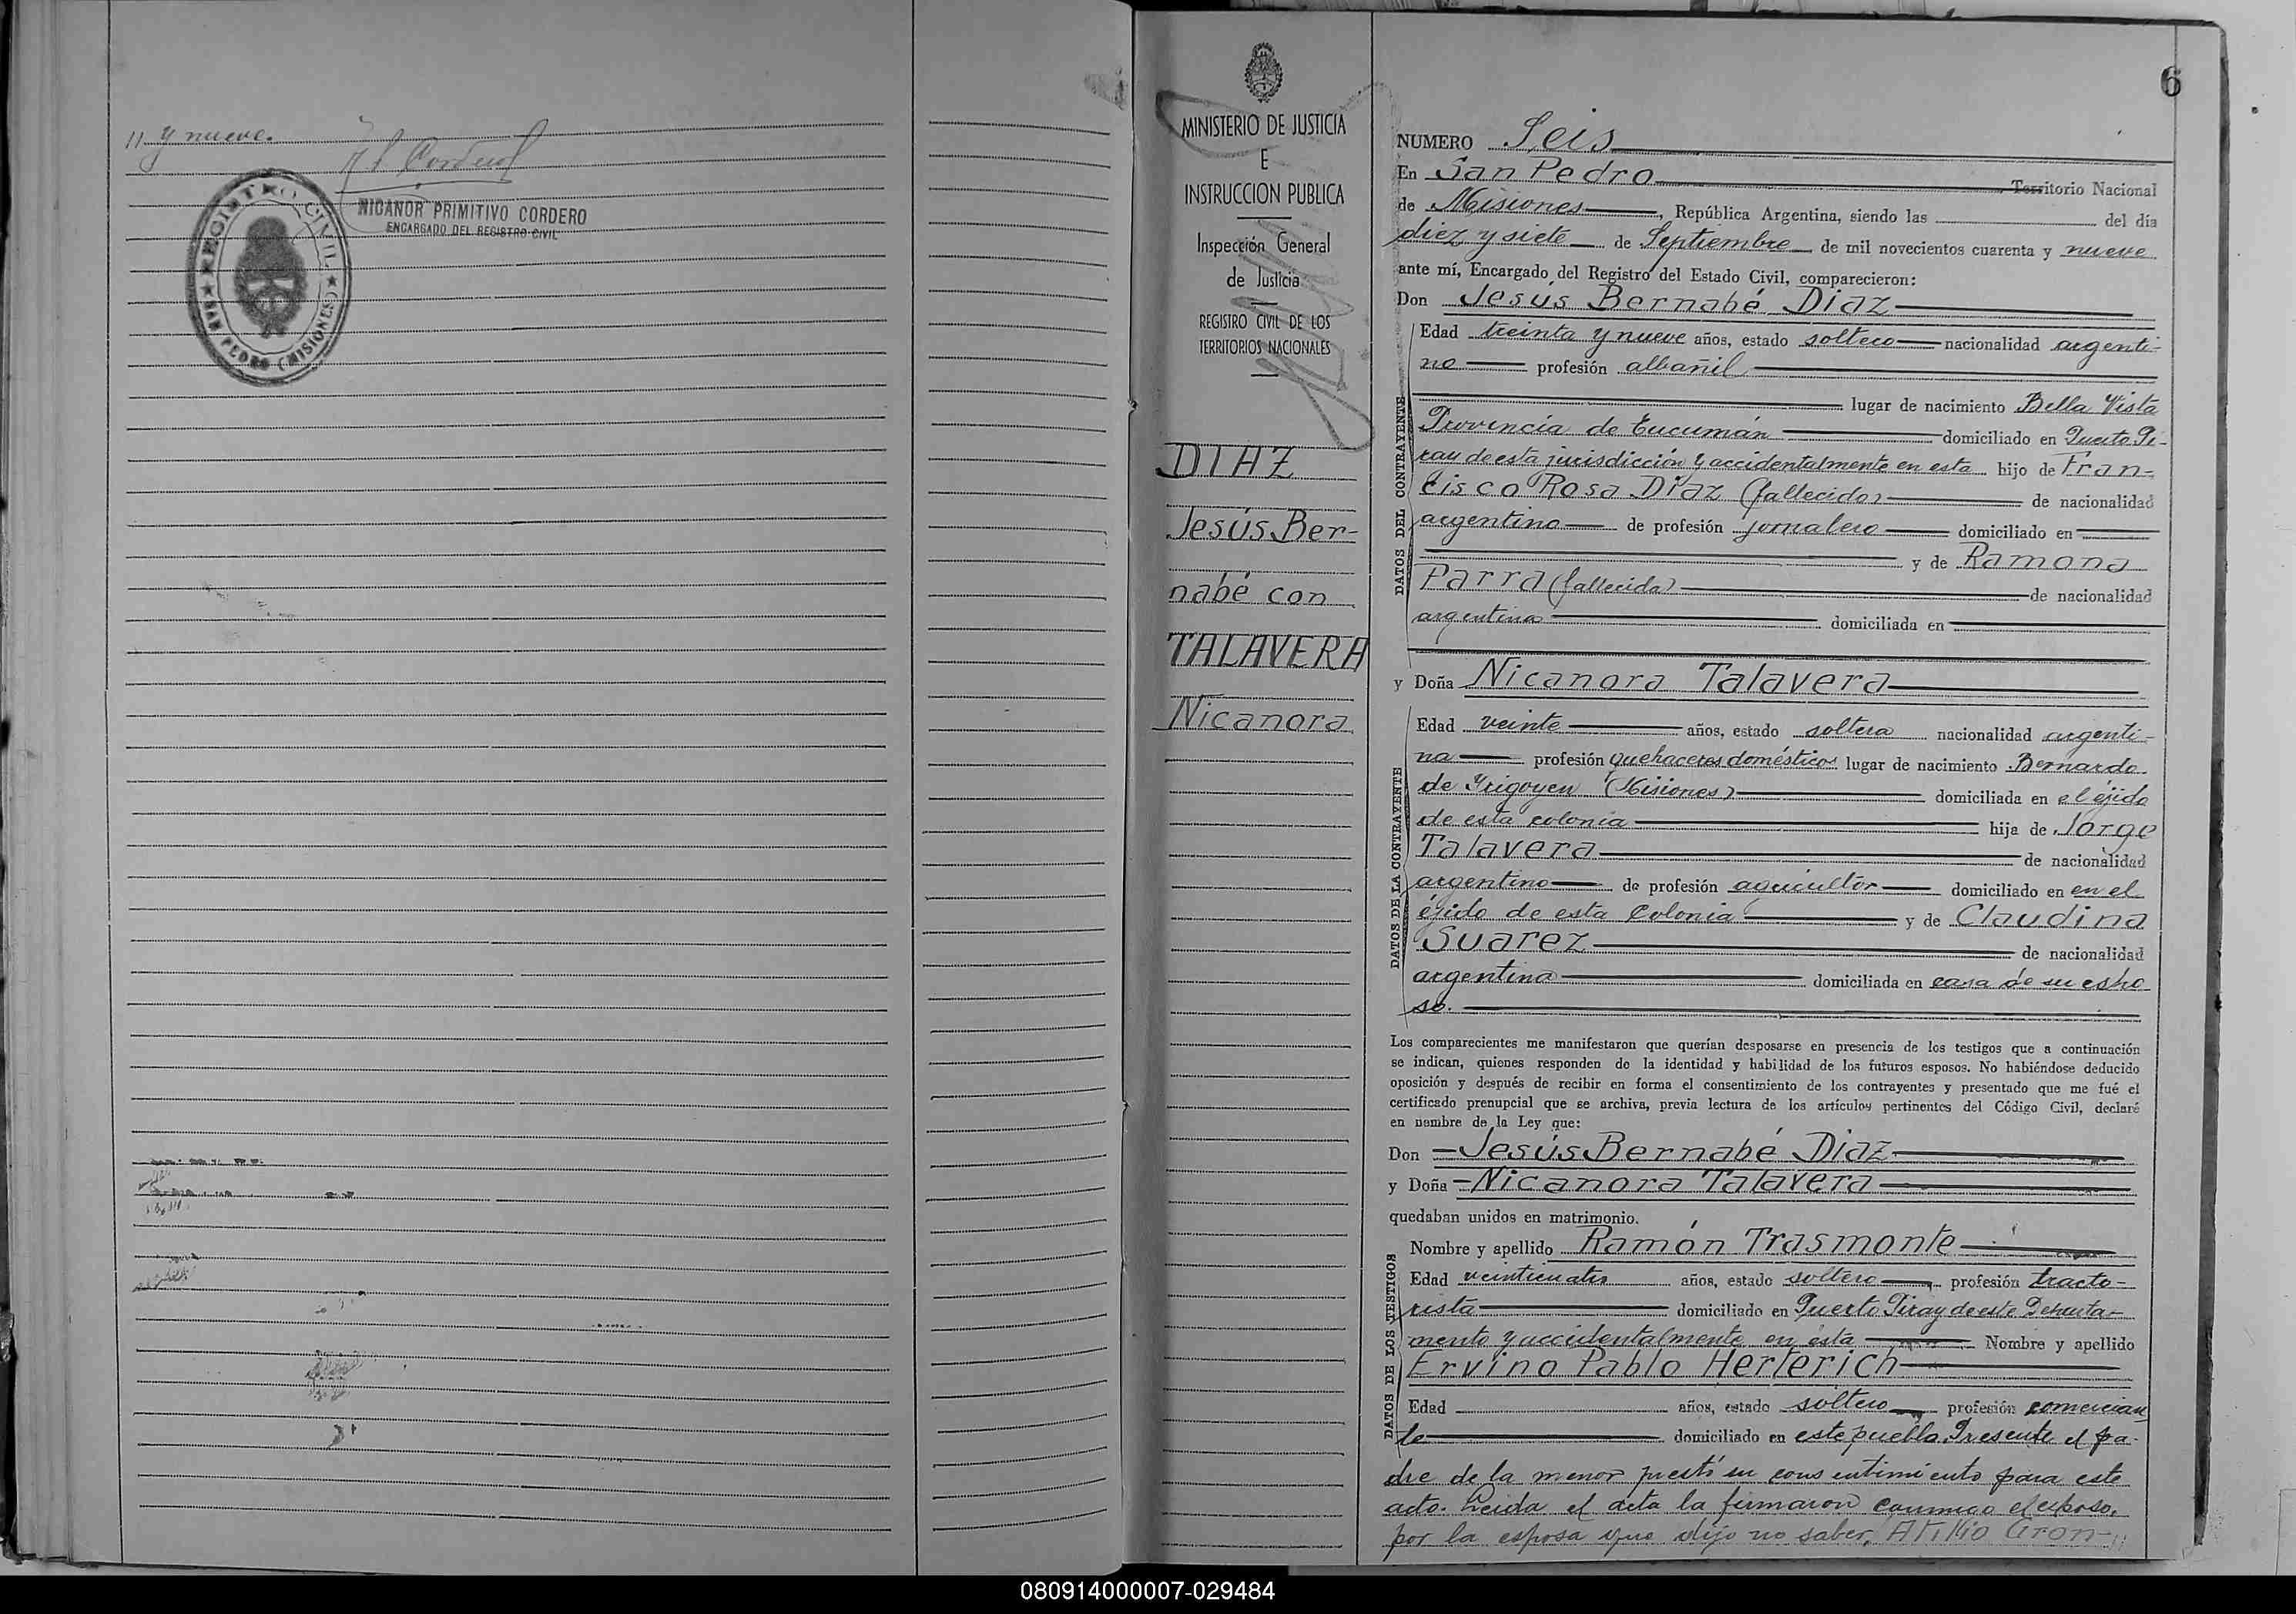 11 y nueve.
NICANOR PRIMITIVO CORDERO
ENCARGADO DEL REGISTRO CIVIL
REGISTRO CIVIL
SAN PEDRO (MISIONES)
MINISTERIO DE JUSTICIA
E
INSTRUCCION PUBLICA
Inspección General
de Justicia
REGISTRO CIVIL DE LOS
TERRITORIOS NACIONALES
DIAZ
Jesús Ber-
nabé con
TALAVERA
Nicanora
6
NUMERO Seis
En San Pedro Territorio Nacional
de Misiones, República Argentina, siendo las del día
diez y siete de Septiembre de mil novecientos cuarenta y nueve
ante mí, Encargado del Registro del Estado Civil, comparecieron:
Don Jesús Bernabé Diaz
DATOS DEL CONTRAYENTE
Edad treinta y nueve años, estado soltero nacionalidad argenti-
no profesión albañil
lugar de nacimiento Bella Vista
Provincia de Tucumán domiciliado en Puerto Pi-
ray de esta jurisdicción y accidentalmente en esta hijo de Fran-
cisco Rosa Diaz (fallecido) de nacionalidad
argentino de profesión jornalero domiciliado en
y de Ramona
Parra (fallecida) de nacionalidad
argentina domiciliada en
y Doña Nicanora Talavera
DATOS DE LA CONTRAYENTE
Edad veinte años, estado soltera nacionalidad argenti-
na profesión quehaceres domésticos lugar de nacimiento Bernardo
de Irigoyen (Misiones) domiciliada en el éjido
de esta colonia hija de Jorge
Talavera de nacionalidad
argentino de profesión agricultor domiciliado en en el
éjido de esta Colonia y de Claudina
Suarez de nacionalidad
argentina domiciliada en casa de su espo
so.
Los comparecientes me manifestaron que querían desposarse en presencia de los testigos que a continuación
se indican, quienes responden de la identidad y habilidad de los futuros esposos. No habiéndose deducido
oposición y después de recibir en forma el consentimiento de los contrayentes y presentado que me fué el
certificado prenupcial que se archiva, previa lectura de los artículos pertinentes del Código Civil, declaré
en nombre de la Ley que:
Don Jesús Bernabé Diaz
y Doña Nicanora Talavera
quedaban unidos en matrimonio.
DATOS DE LOS TESTIGOS
Nombre y apellido Ramón Trasmonte
Edad veinticuatro años, estado soltero profesión tracto-
rista domiciliado en Puerto Piray de este Departa-
mento y accidentalmente en ésta Nombre y apellido
Ervino Pablo Herterich
Edad años, estado soltero profesión comercian
te domiciliado en este pueblo. Presente el pa-
dre de la menor prestó su consentimiento para este
acto. Leida el acta la firmaron conmigo el esposo,
por la esposa que dijo no saber, Atilio Gron-11
080914000007-029484